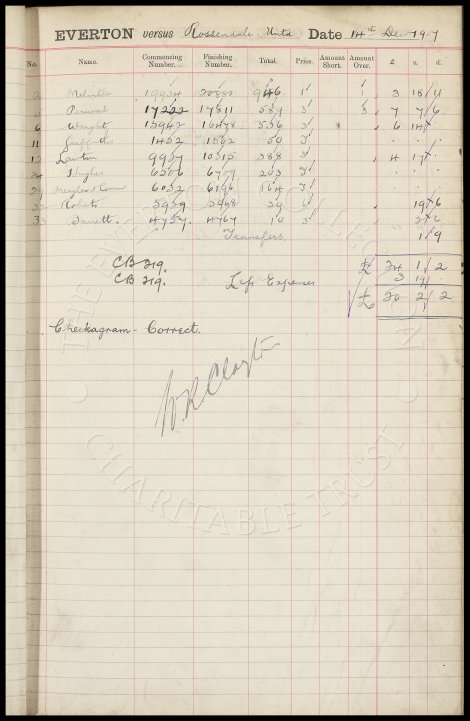 EVERTON versus Rossendale Untd Date 14th Dec 1907
No. Name. Commencing Number. Finishing Number. Total. Price. Amount Short. Amount Over. £ s. d.
2 Melville 19934 20880 946 1' 1 3 18 11
5 Percival 17222 17811 589 3' 3 7 7 6
6 Wright 15942 16478 536 3' 6 14
11 Griffiths 1452 1502 50 3'
12 Lawton 9937 10315 388 3' 4 17
24 Hughes 6506 6709 203 3'
29 6032 6196 164 3'
32 Roberts 5929 5968 39 6' 19 6
33 Barrett. 4757 4767 10 3' 2 6
Transfers. 1 9
CB 219. £ 24 1 2
CB 219. Less Expenses 3 19
£ 20 2 2
Checkagram - Correct.
W.R. Clayton
THE EVERTON COLLECTION CHARITABLE TRUST